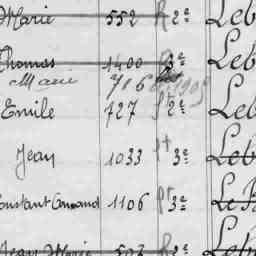 Marie 552 R 2e Leb
Thomas 1400 3e Leb
Marie 716 1905
Emile 727 St 2e Leb
Jean 1033 St 3e Leb
Constant Armand 1106 St 3e Le B
Jean Marie 503 R 2e Leb